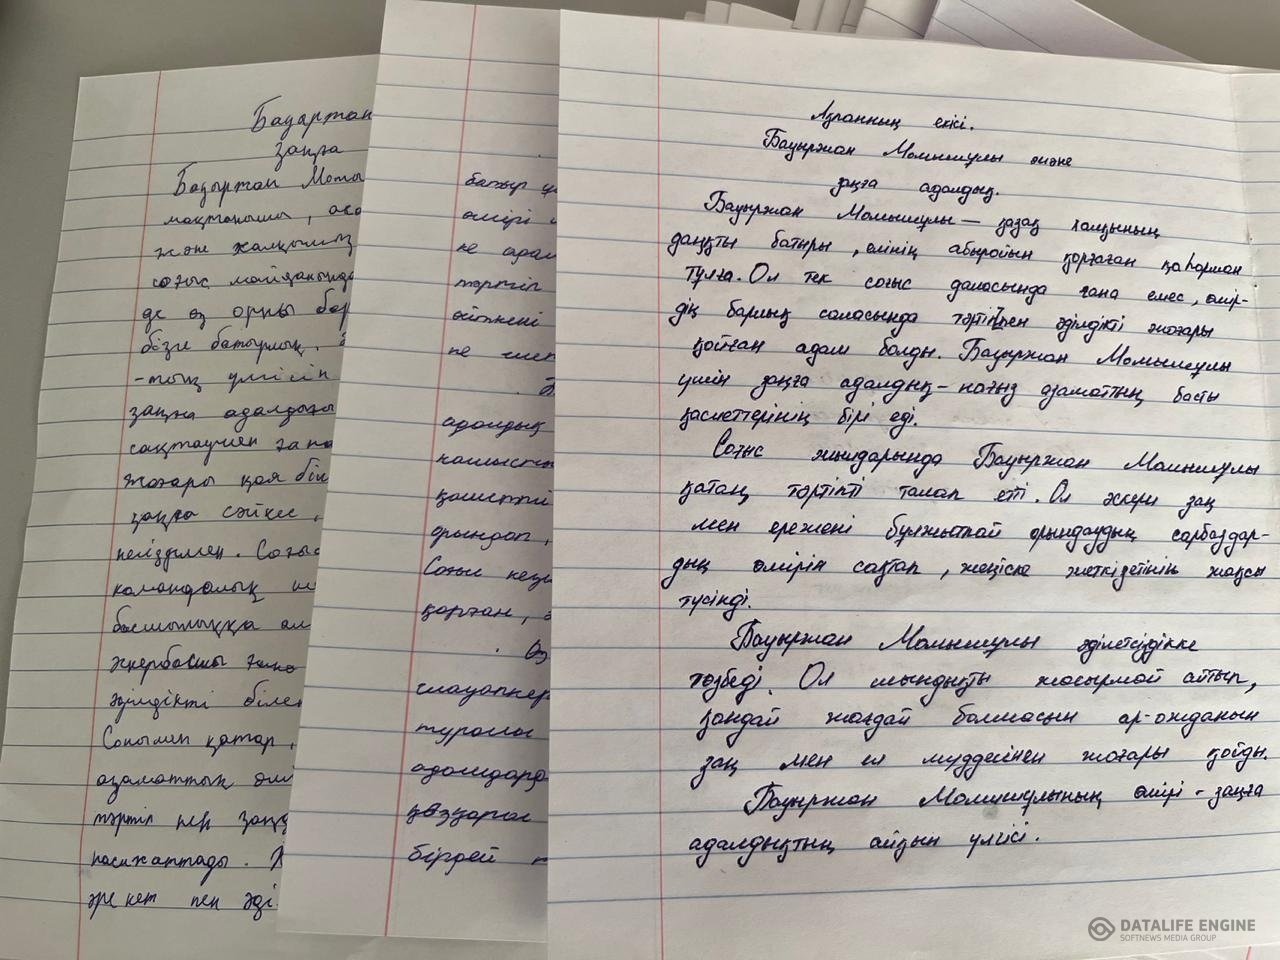 Бауыржан
заңға
Бауыржан Момы
мақтанышы,
және халқының
соғыс майданында
де өз орны бар
бізге батырлық.
үлгісін
заңға адалдығы
сақтаумен ғана
жоғары қоя біл
заңға сәйкес,
негізделген. Соғыс
командалық
басшылыққа ал
әскербасы ғана
әділдікті білен
Сонымен қатар,
азаматтық әді
тәртіп пен заңд
насихаттады.
әрекет пен әді
батыр
өмірі
не адам
тәртіп
өйткені
не шеп
адалдық
намыст
қасиетті
орындап,
Соғыс кезін
қорған,
Өз
жауапкер
туралы
адамдард
көзқарас
бірдей
Ақпанның екісі.
Бауыржан Момышұлы және
заңға адалдық.
Бауыржан Момышұлы — қазақ халқының
даңқты батыры, елінің абыройын қорғаған қаһарман
тұлға. Ол тек соғыс даласында ғана емес, өмір-
дің барлық саласында тәртіппен әділдікті жоғары
қойған адам болды. Бауыржан Момышұлы
үшін заңға адалдық - нағыз азаматтың басты
қасиеттерінің бірі еді.
Соғыс жылдарында Бауыржан Момышұлы
қатаң тәртіпті талап етті. Ол әскери заң
мен ережені бұлжытпай орындаудың сарбаздар-
дың өмірін сақтап, жеңіске жеткізетінін жақсы
түсінді.
Бауыржан Момышұлы әділетсіздікке
төзбеді. Ол шындықты жасырмай айтып,
қандай жағдай болмасын ар-ожданын
заң мен ел мүддесінен жоғары қойды.
Бауыржан Момышұлының өмірі - заңға
адалдықтың айқын үлгісі.
DATALIFE ENGINE
SOFTNEWS MEDIA GROUP